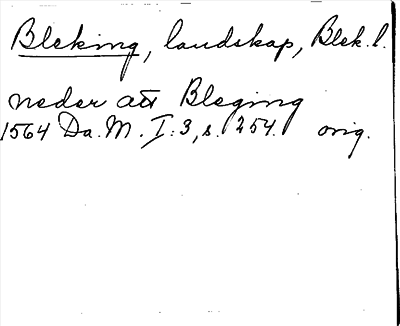 Bleking, landskap, Blek. l.
neder att Bleging
1564 Da. M. I:3, s. 254. orig.